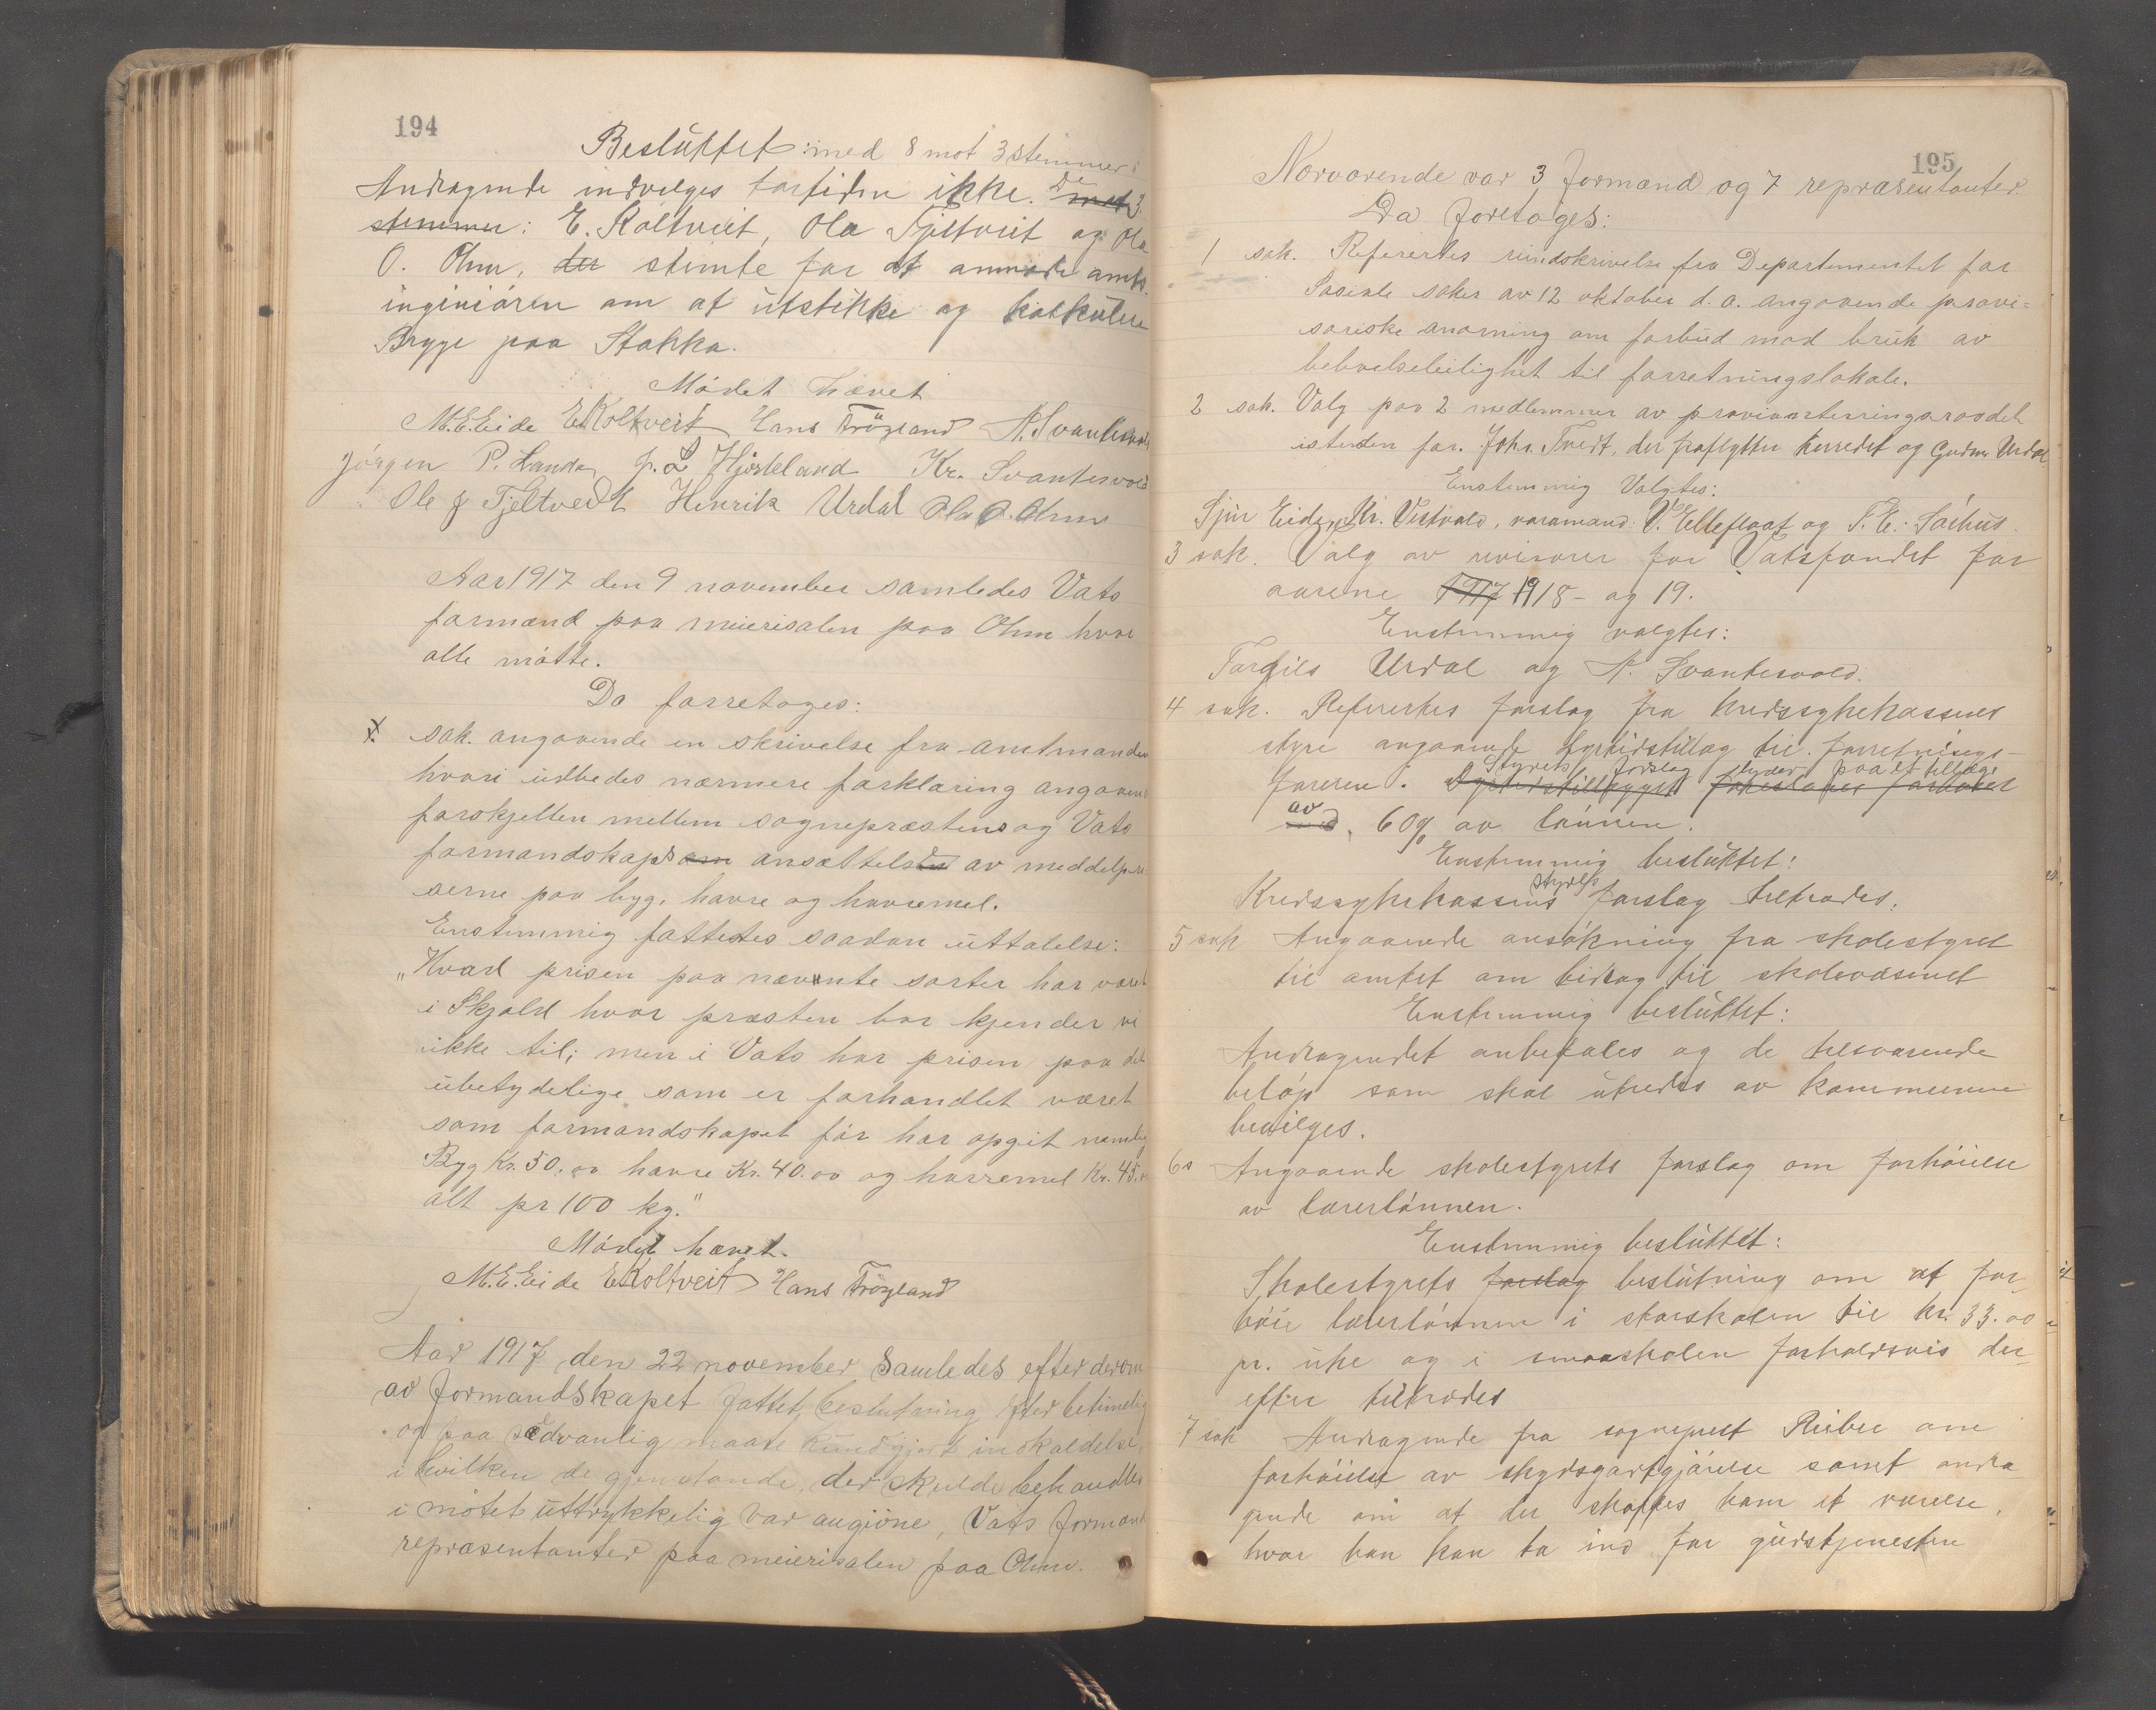 194
Besluttet: med 8 mot 3 stemmer:
Andragende indvelges forfiden ikke. De mot 3
stemmer: E. Koltveit, Ola Tjeltveit og Ola
O. Ohm, der stemte for at anmode amts-
ingeniören om at utstikke og kalkulere
Brygge paa Stakka.
Mödet hævet
M.E. Eide E Koltveit Hans Fröyland N. Svantesvold
Jörgen P. Landa J. L Hjorteland Kr. Svantesvold
Ole J Tjeltvedt Henrik Urdal Ola O. Ohm
Aar 1917 den 9 november samledes Vats
formænd paa meierisalen paa Ohm hvor
alle mötte.
Da forretoges:
1. sak. angaaende en skrivelse fra amtmanden
hvori udbedes nærmere forklaring angaaende
forskjellen mellem sogneprestens og Vats
formandskaps om ansættelse av meddelpri-
serne paa byg, havre og havremel.
Enstemmig fattedes saadan uttalelse:
"Hvad prisen paa nævnte sorter har været
i Skjold hvor præsten bor kjender vi
ikke til; men i Vats har prisen paa det
ubetydelige som er forhandlet været
som formandskapet för har opgit nemlig
Byg Kr. 50.00 havre Kr. 40.00 og havremel Kr. 45.
alt pr 100 kg."
Mödet hævet.
M.E. Eide E Koltveit Hans Fröyland
Aar 1917 den 22 november samledes efter derom
av formandskapet fattet beslutning efter betimelig
og paa sedvanlig maate kundgjort indkaldelse,
i hvilken de gjenstande, der skulde behandles
i mötet uttrykkelig var angivne, Vats formænd
repræsentanter paa meierisalen paa Ohm.
195
Nærværende var 3 formænd og 7 repræsentanter.
Da foretages:
1 sak. Refererdes rundskrivelse fra Departementet for
Sociale saker av 12 oktober d. a. angaaende provi-
soriske anorning om forbud mod bruk av
bebyelseleilighet til forretningslokale.
2 sak. Valg paa 2 medlemmer av provianteringsraadet
isteden for Johs. Tvedt, der fraflytter herredet og Gudm. Urdal
Enstemmig Valgtes:
Sjur Eide, Kr. Vestvold, varamænd: V. Elleflaat og T. E. Söhus.
3 sak. Valg av revisorer for Vatsfondet for
aarene 1917 1918 - og 19.
Enstemmig valgtes:
Torgils Urdal og N. Svantesvold.
4 sak. Refererdes forslag fra kredssykekassens
styre angaaende dyrtidstillæg til forretnings-
föreren. Styrets forslag lyder paa et tillæg
Dyrtidstillægget foreslaaes
av 60% av lönnen.
Enstemmig besluttet:
Kredssykekassens styrets forslag tiltrædes.
5 sak Angaaende ansökning fra skolestyret
til amtet om bidrag til skolevæsenet
Enstemmig besluttet:
Andragendet anbefales og de tilsvarende
belöp som skal utredes av kommunen
bevilges.
6 s Angaaende skolestyrets forslag om forhöielse
av lærerlönnen.
Enstemmig besluttet:
Skolestyrets forslag beslutning om at for-
höie lærerlönnen i storskolen til kr. 33.00
pr. uke og i smaaskolen forholdsvis der-
efter tiltrædes
7 sak Andragende fra sogneprest Riiber om
forhöielse av skydsgodtgjörelse samt andra
gende om at der skaffes ham et værelse,
hvor han kan ta ind for gudstjenesten